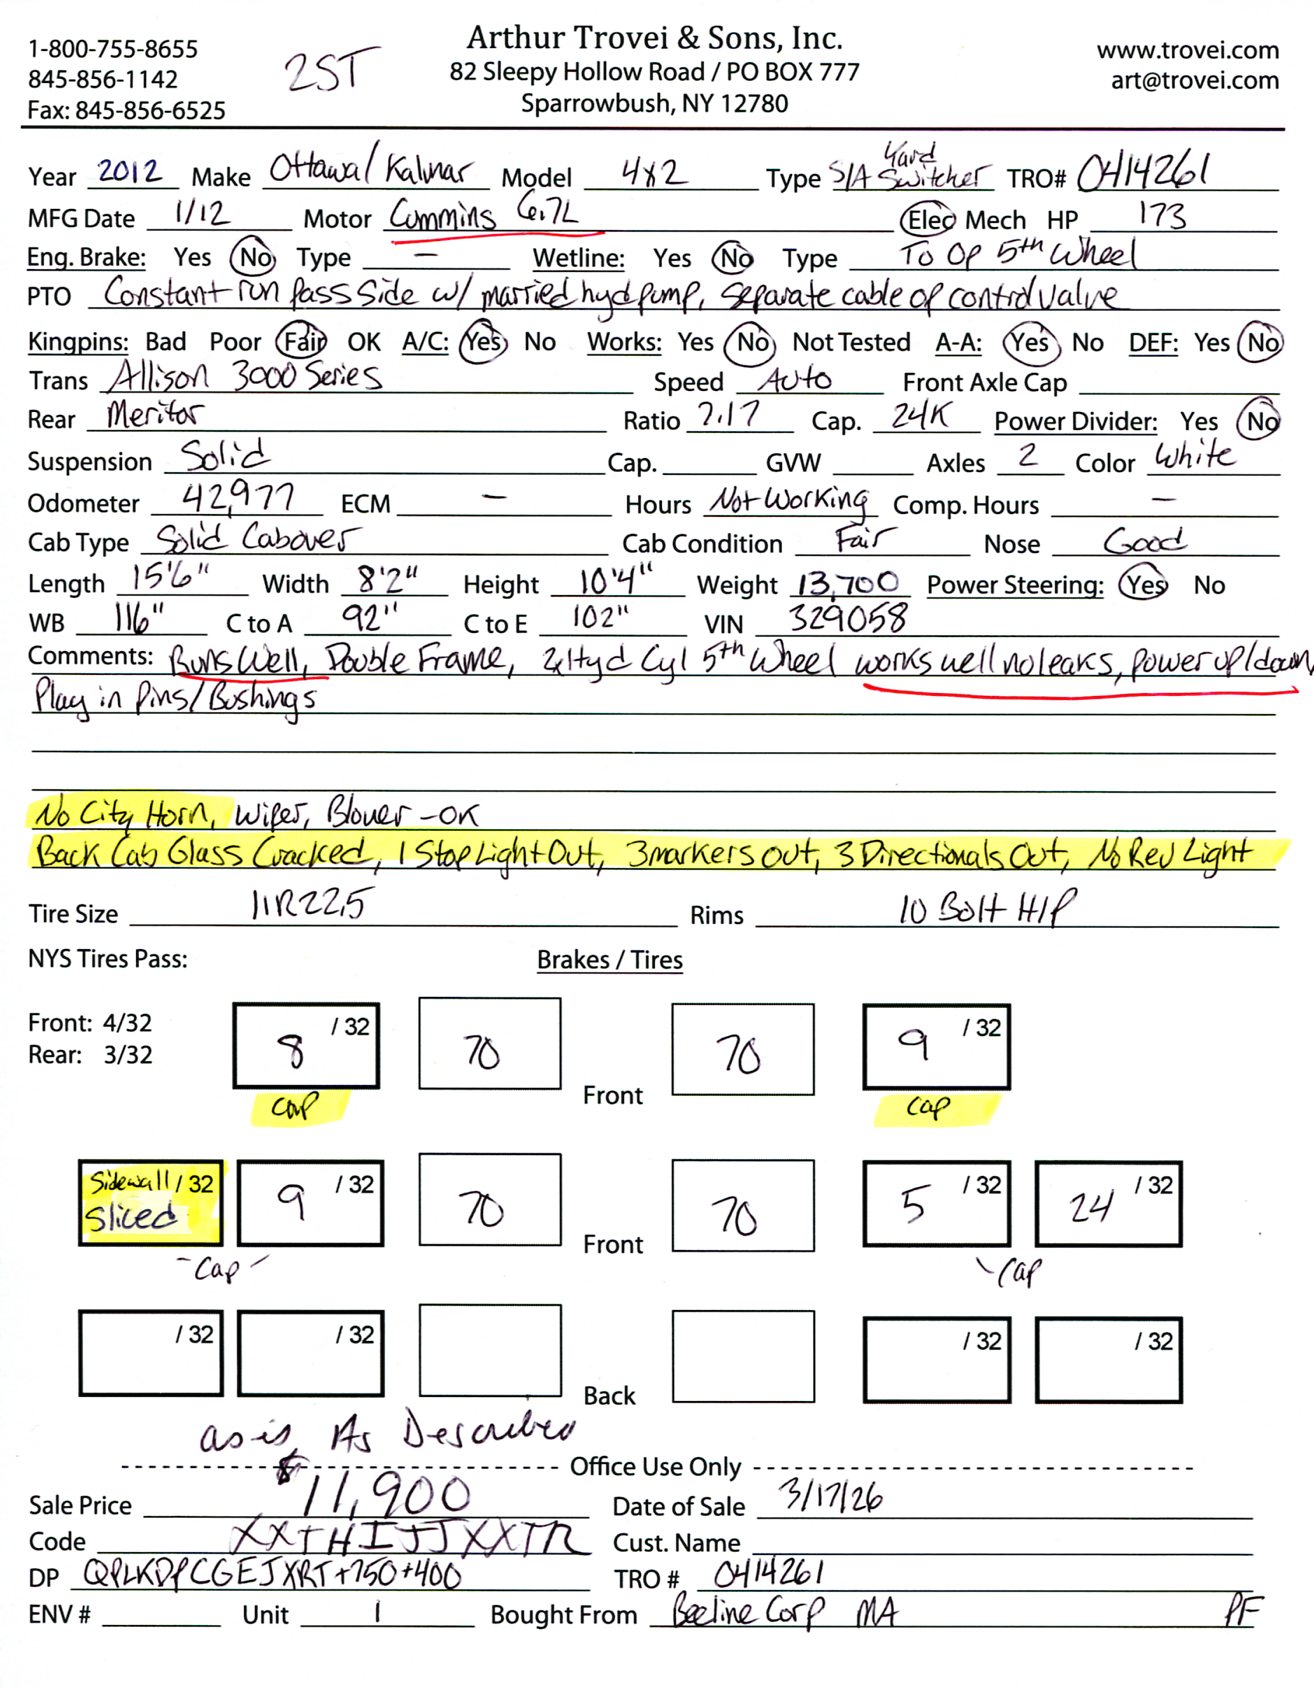 1-800-755-8655
845-856-1142
Fax: 845-856-6525
2ST
Arthur Trovei & Sons, Inc.
82 Sleepy Hollow Road / PO BOX 777
Sparrowbush, NY 12780
www.trovei.com
art@trovei.com
Year 2012 Make Ottawa/Kalmar Model 4x2 Type S/A Yard Switcher TRO# 0414261
MFG Date 1/12 Motor Cummins 6.7L Elec Mech HP 173
Eng. Brake: Yes No Type — Wetline: Yes No Type To Op 5th Wheel
PTO Constant run pass side w/ married hyd pump, separate cable op control valve
Kingpins: Bad Poor Fair OK A/C: Yes No Works: Yes No Not Tested A-A: Yes No DEF: Yes No
Trans Allison 3000 Series Speed Auto Front Axle Cap
Rear Meritor Ratio 7.17 Cap. 24K Power Divider: Yes No
Suspension Solid Cap. GVW Axles 2 Color White
Odometer 42,977 ECM — Hours Not Working Comp. Hours —
Cab Type Solid Cabover Cab Condition Fair Nose Good
Length 15'6" Width 8'2" Height 10'4" Weight 13,700 Power Steering: Yes No
WB 116" C to A 92" C to E 102" VIN 329058
Comments: Runs Well, Double Frame, 2x Hyd Cyl 5th Wheel works well no leaks, power up/down,
Play in Pins/Bushings
No City Horn, Wiper, Blower - OK
Back Cab Glass Cracked, 1 Stop Light Out, 3 markers out, 3 Directionals Out, No Rev Light
Tire Size 11R22.5 Rims 10 Bolt H/P
NYS Tires Pass: Brakes / Tires
Front: 4/32
Rear: 3/32
8 /32 70 Front 70 9 /32
Cap Cap
Sidewall /32 Sliced 9 /32 70 Front 70 5 /32 24 /32
- Cap - \ Cap
/ 32 / 32 Back / 32 / 32
as is, As Described
Office Use Only
Sale Price $11,900 Date of Sale 3/17/26
Code XXTHIJJXXTR Cust. Name
DP QPLKDPCGEJXRT+750+400 TRO # 0414261
ENV # Unit 1 Bought From Beeline Corp MA PF